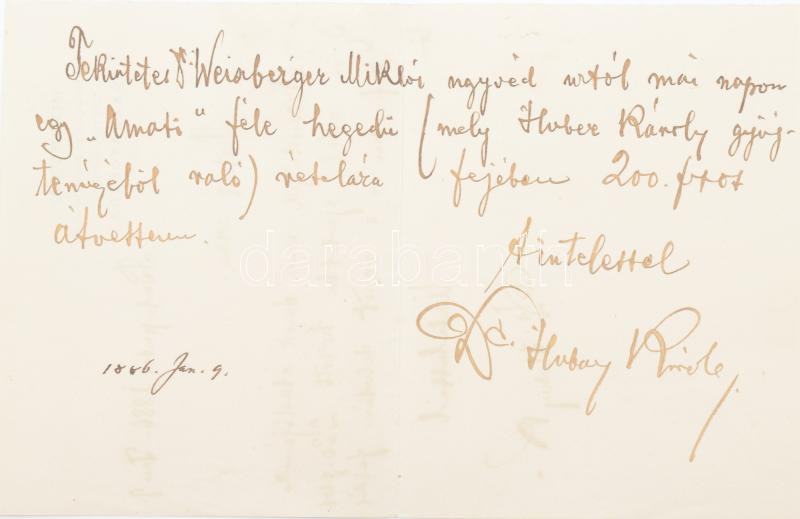 Tekintetes Dr. Weinberger Miklós ügyvéd úrtól mai napon
egy „Amati" féle hegedű (mely Huber Károly gyűj-
teményéből való) vételára fejében 200. frtot
átvettem.
Tisztelettel
Dr. Hubay Károly
1886. Jan. 9.
darabanth